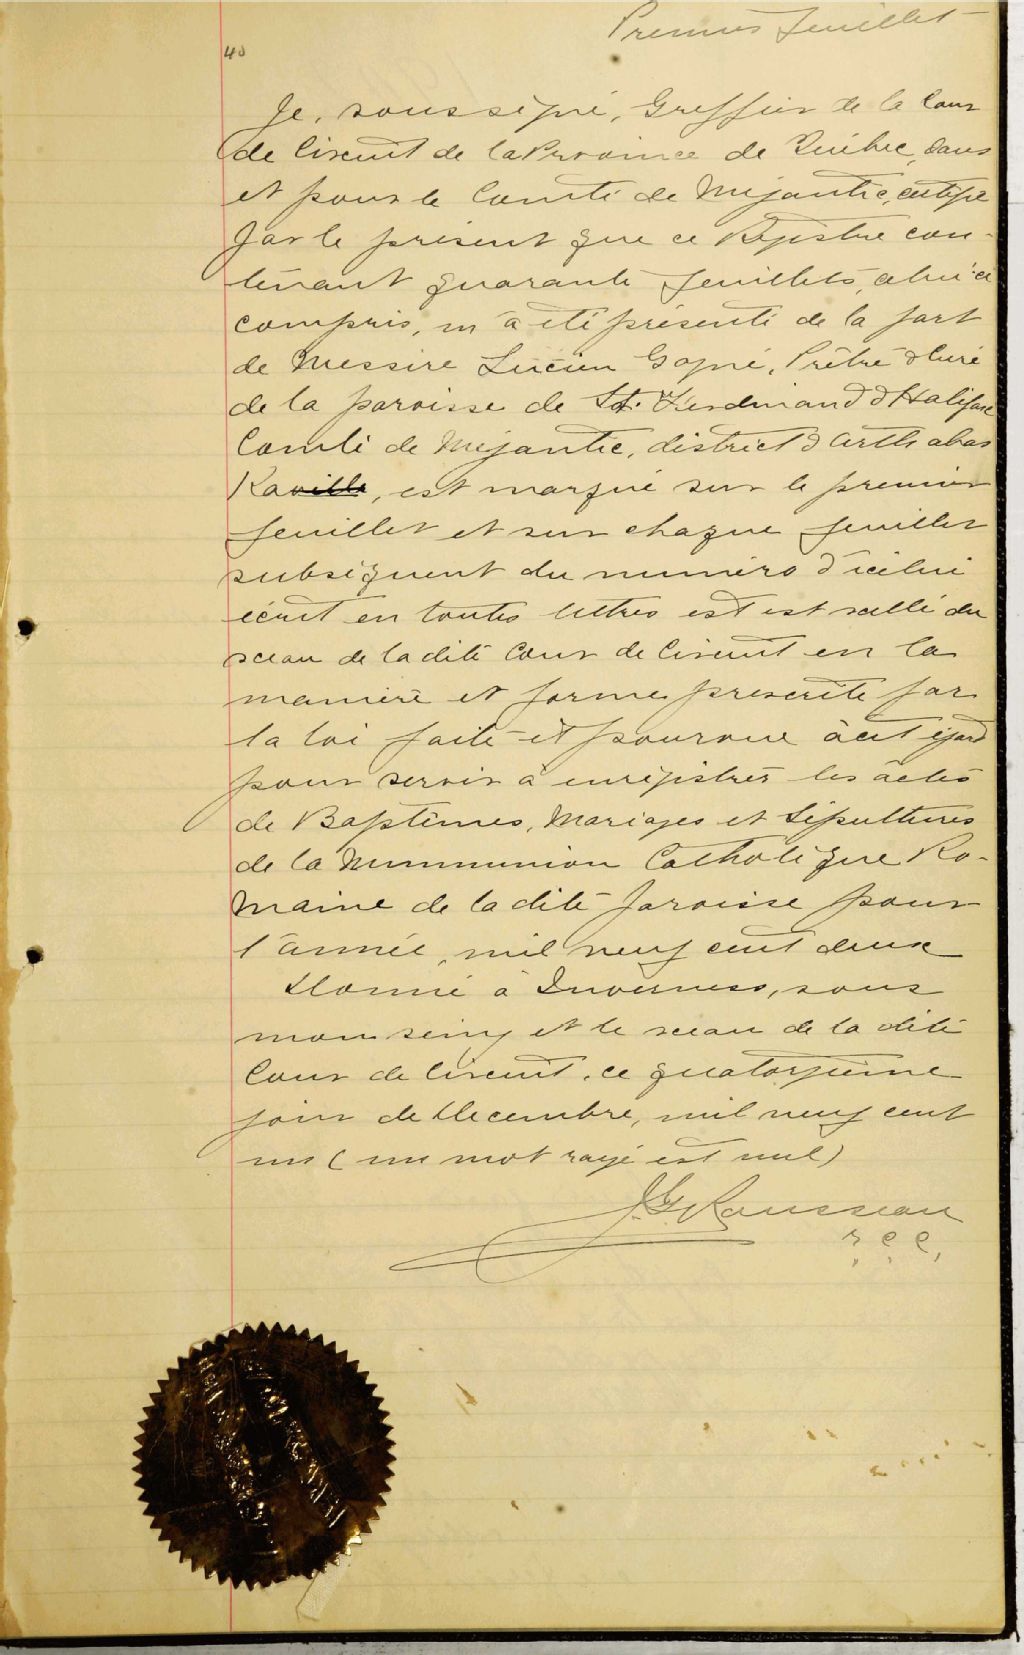 Premier feuillet
40
Je, soussigné, Greffier de la Cour
de Circuit de la Province de Québec, dans
et pour le Comté de Mégantic, certifie
par le présent que ce Registre con-
tenant quarante feuillets, celui-ci
compris, m'a été présenté de la part
de Messire Lucien Gagné, Prêtre & Curé
de la paroisse de St. Ferdinand d'Halifax
Comté de Mégantic, district d'Arthabas
Ka, est marqué sur le premier
feuillet et sur chaque feuillet
subséquent du numéro d'icelui
écrit en toutes lettres est est scellé du
sceau de la dite Cour de Circuit en la
manière et forme prescrite par
la loi faite et pourvue à cet égard
pour servir à enrégistrer les actes
de Baptêmes, Mariages et Sépultures
de la Communion Catholique Ro-
maine de la dite paroisse pour
l'année, mil neuf cent deux
Donné à Inverness, sous
mon seing et le sceau de la dite
Cour de Circuit, ce quatorzième
jour de Decembre, mil neuf cent
un (un mot rayé est nul)
Rousseau
g. c. c.